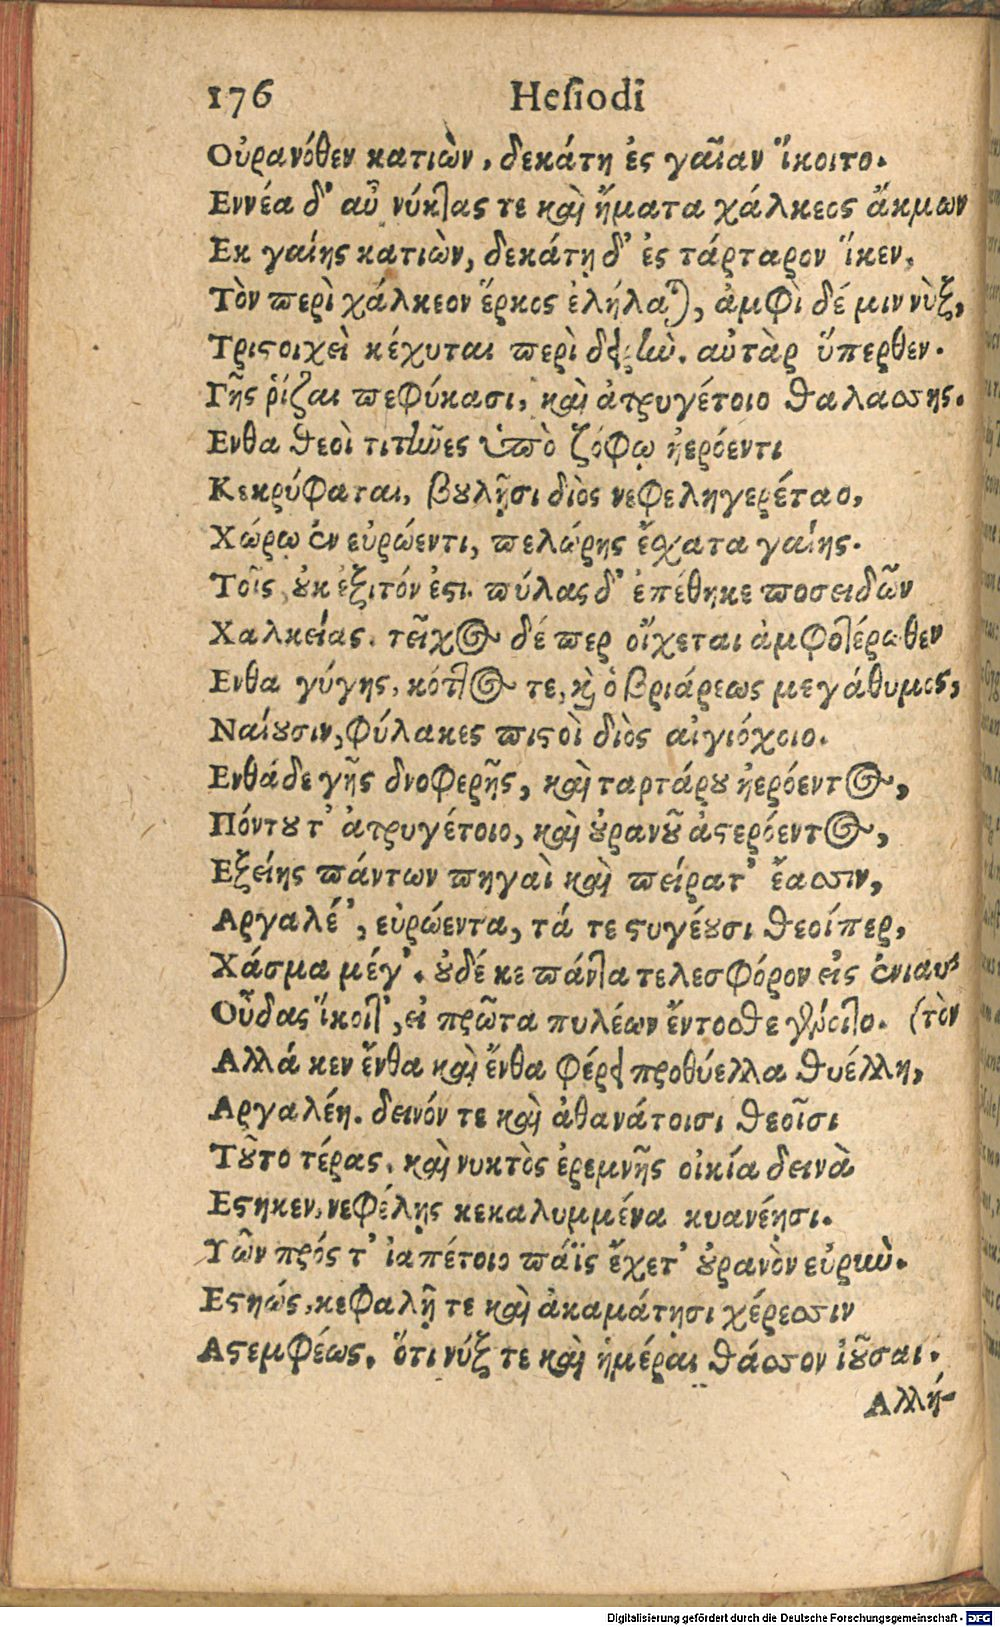 176 Hesiodi
Οὐρανόθεν κατιὼν, δεκάτη ἐς γαῖαν ἵκοιτο.
Εννέα δ' αὖ νύκτας τε καὶ ἤματα χάλκεος ἄκμων
Εκ γαίης κατιὼν, δεκάτῃ δ' ἐς τάρταρον ἵκεν,
Τὸν περὶ χάλκεον ἕρκος ἐλήλαται, ἀμφὶ δέ μιν νὺξ,
Τριστοιχεὶ κέχυται περὶ δειρὴν. αὐτὰρ ὕπερθεν.
Γῆς ῥίζαι πεφύκασι, καὶ ἀτρυγέτοιο θαλάσσης.
Ενθα θεοὶ τιτῆνες ὑπὸ ζόφῳ ἠερόεντι
Κεκρύφαται, βουλῇσι διὸς νεφεληγερέταο,
Χώρῳ ἐν εὐρώεντι, πελώρης ἔσχατα γαίης.
Τοῖς οὐκ ἐξιτόν ἐστι. πύλας δ' ἐπέθηκε ποσειδῶν
Χαλκείας. τεῖχος δέ περ οἴχεται ἀμφοτέρωθεν
Ενθα γύγης, κόττος τε, καὶ ὁ βριάρεως μεγάθυμος,
Ναίουσιν, φύλακες πιστοὶ διὸς αἰγιόχοιο.
Ενθάδε γῆς δνοφερῆς, καὶ ταρτάρου ἠερόεντος,
Πόντου τ' ἀτρυγέτοιο, καὶ οὐρανοῦ ἀστερόεντος,
Εξείης πάντων πηγαὶ καὶ πείρατ' ἔασσιν,
Αργαλέ', εὐρώεντα, τά τε στυγέουσι θεοίπερ,
Χάσμα μέγ'. οὐδέ κε πάντα τελεσφόρον εἰς ἐνιαυ-
Οὖδας ἵκοιτ', εἰ πρῶτα πυλέων ἔντοσθε γένοιτο. (τὸν
Αλλά κεν ἔνθα καὶ ἔνθα φέρει προθύελλα θυέλλη,
Αργαλέη. δεινόν τε καὶ ἀθανάτοισι θεοῖσι
Τοῦτο τέρας. καὶ νυκτὸς ἐρεμνῆς οἰκία δεινὰ
Εστηκεν, νεφέλῃς κεκαλυμμένα κυανέῃσι.
Τῶν πρός τ' ἰαπέτοιο πάϊς ἔχετ' οὐρανὸν εὐρὺν.
Εστηώς, κεφαλῇ τε καὶ ἀκαμάτῃσι χέρεσσιν
Αστεμφέως. ὅτι νύξ τε καὶ ἡμέραι θάσσον ἰοῦσαι.
Αλλή-
Digitalisierung gefördert durch die Deutsche Forschungsgemeinschaft - DFG